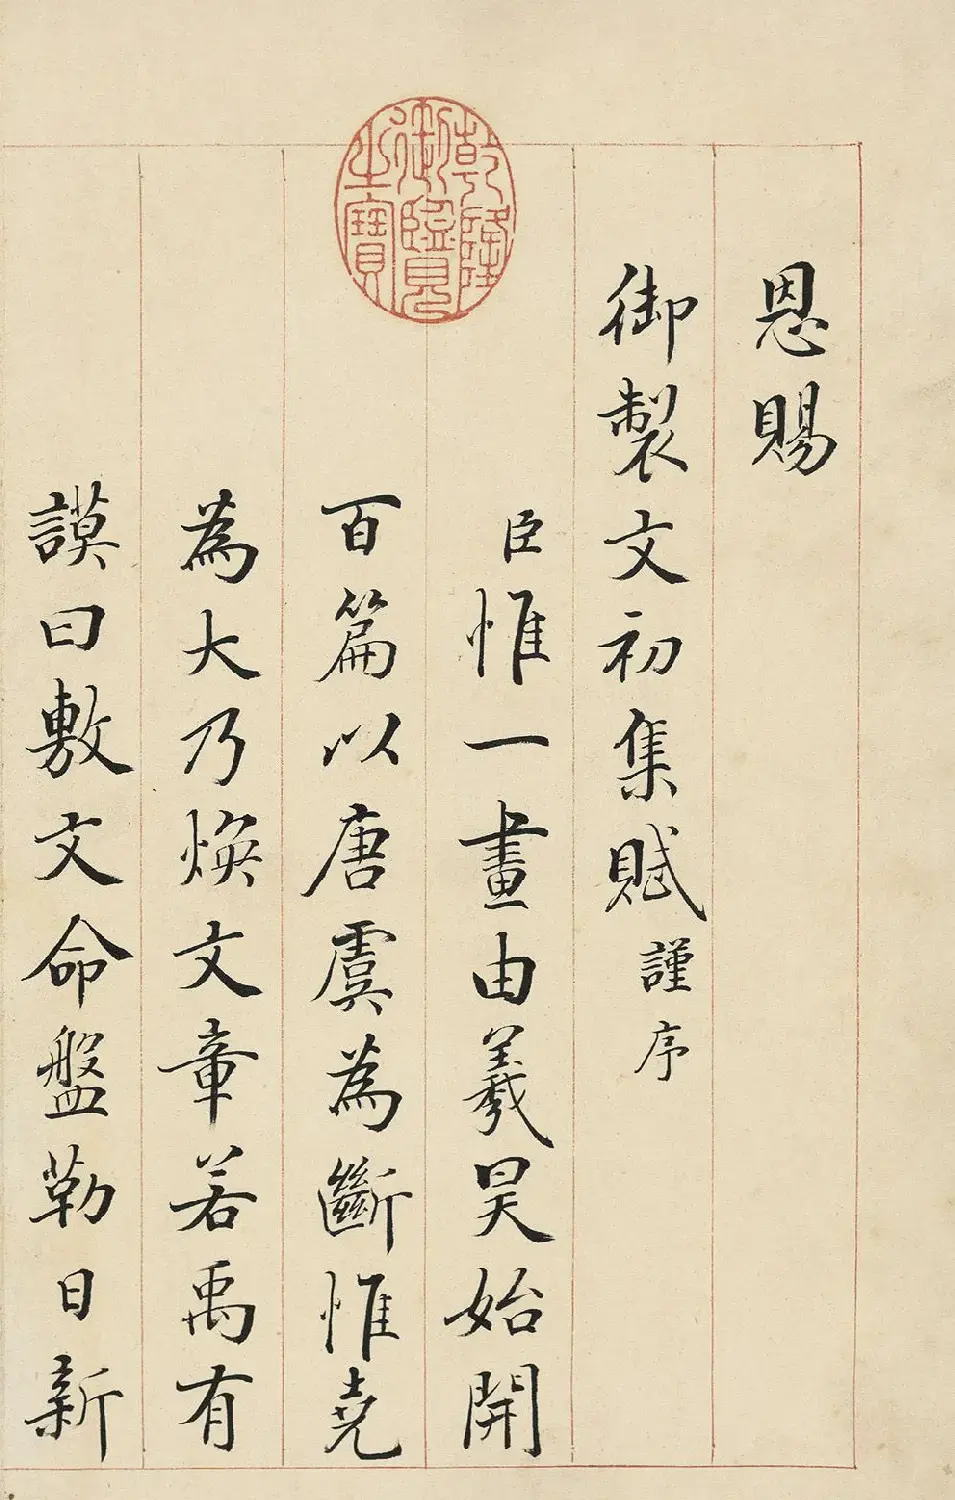 恩賜
御製文初集賦謹序
臣惟一畫由羲昊始開
百篇以唐虞為斷惟堯
為大乃煥文章若禹有
謨曰敷文命盤勒日新
乾隆御覽之寶